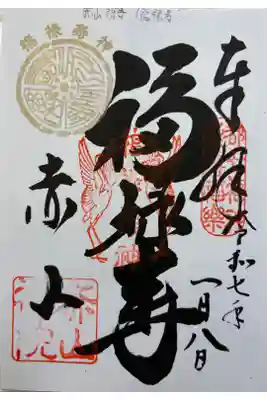 赤山禅院 (福禄寿)
奉拝 令和七年
一月八日
福禄寿
赤山
福禄寿神